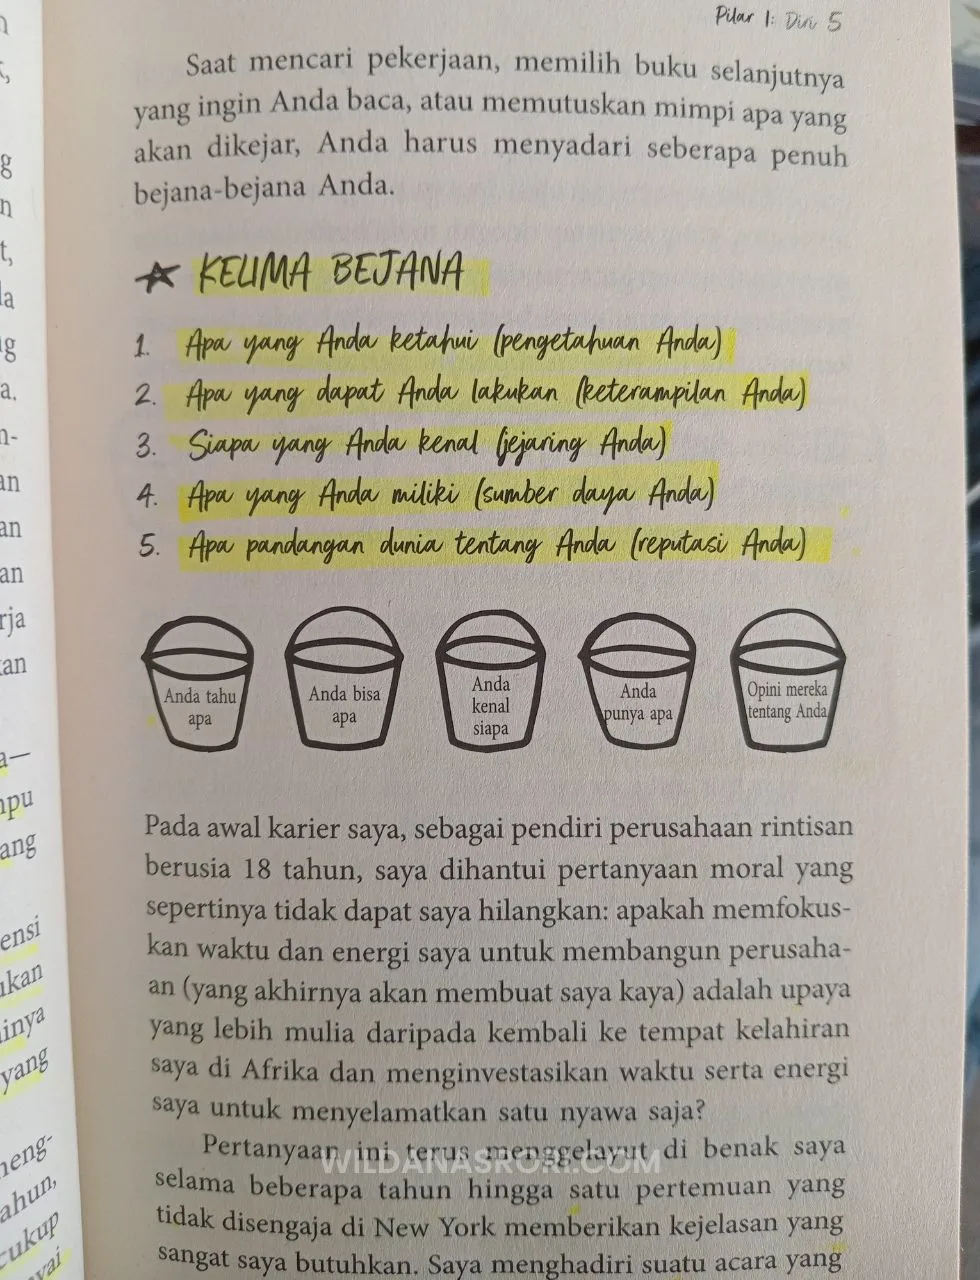 Pilar 1: Diri 5
Saat mencari pekerjaan, memilih buku selanjutnya
yang ingin Anda baca, atau memutuskan mimpi apa yang
akan dikejar, Anda harus menyadari seberapa penuh
bejana-bejana Anda.
KELIMA BEJANA
1. Apa yang Anda ketahui (pengetahuan Anda)
2. Apa yang dapat Anda lakukan (keterampilan Anda)
3. Siapa yang Anda kenal (jejaring Anda)
4. Apa yang Anda miliki (sumber daya Anda)
5. Apa pandangan dunia tentang Anda (reputasi Anda)
Anda tahu
apa
Anda bisa
apa
Anda
kenal
siapa
Anda
punya apa
Opini mereka
tentang Anda
Pada awal karier saya, sebagai pendiri perusahaan rintisan
berusia 18 tahun, saya dihantui pertanyaan moral yang
sepertinya tidak dapat saya hilangkan: apakah memfokus-
kan waktu dan energi saya untuk membangun perusaha-
an (yang akhirnya akan membuat saya kaya) adalah upaya
yang lebih mulia daripada kembali ke tempat kelahiran
saya di Afrika dan menginvestasikan waktu serta energi
saya untuk menyelamatkan satu nyawa saja?
Pertanyaan ini terus menggelayut di benak saya
WILDANASRORI.COM
selama beberapa tahun hingga satu pertemuan yang
tidak disengaja di New York memberikan kejelasan yang
sangat saya butuhkan. Saya menghadiri suatu acara yang